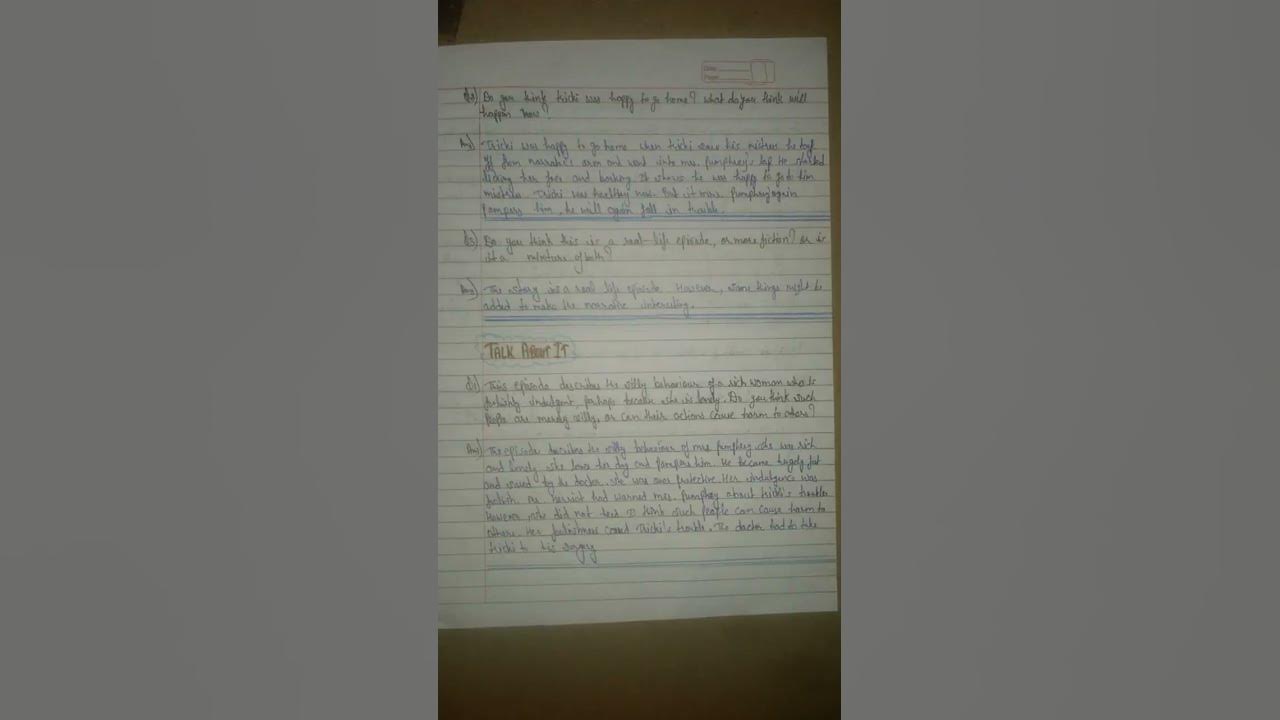 Do you think tricki was happy to go home? what do you think will
happen now?
Ans) Tricki was happy to go home when tricki saw his mistress he
off from narrator's arm and went into mrs. pumphrey's lap He started
licking her face and barking. It shows he was happy to go to him
mistress Tricki was healthy now. But if mrs. Pumphrey again
pampers him, he will again fall in trouble.
Do you think this is a real-life episode, or mere fiction? or is
it a mixture of both?
Ans) The story is a real life episode. However, some things might be
added to make the narrative interesting.
TALK ABOUT IT
Q1) This episode describes the silly behaviour of a rich woman who is
foolishly indulgent, perhaps because she is lonely. Do you think such
people are merely silly, or can their actions cause harm to others?
Ans) The episode describes the silly behaviour of mrs pumphrey she was rich
and lonely. she loves her dog and pampers him. He became hugely fat
and saved by the doctor. she was over protective. Her indulgence was
foolish. Herriot had warned mrs. pumphrey about tricki's trouble
However, she did not heed I think such people can cause harm to
others. Her foolishness caused Tricki's trouble. The doctor had to take
tricki to his surgery